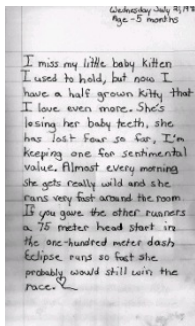 Wednesday July
Age - 5 months
I miss my little baby kitten
I used to hold, but now I
have a half grown kitty that
I love even more. She's
losing her baby teeth, she
has lost four so far, I'm
keeping one for sentimental
value. Almost every morning
she gets really wild and she
runs very fast around the room.
If you gave the other runners
a 75 meter head start in
the one-hundred meter dash
Eclipse runs so fast she
probably would still win the
race.